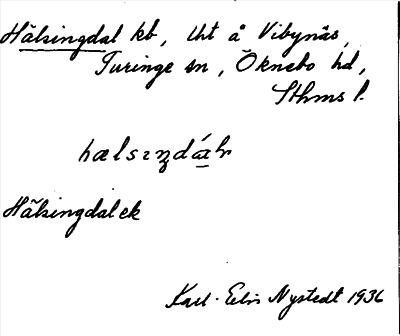 Hälsingdal kb, Uht å Vibynäs,
Turinge sn, Öknebo hd,
Sthms l.
Hälsingdal ek
Karl-Eric Nystedt 1936